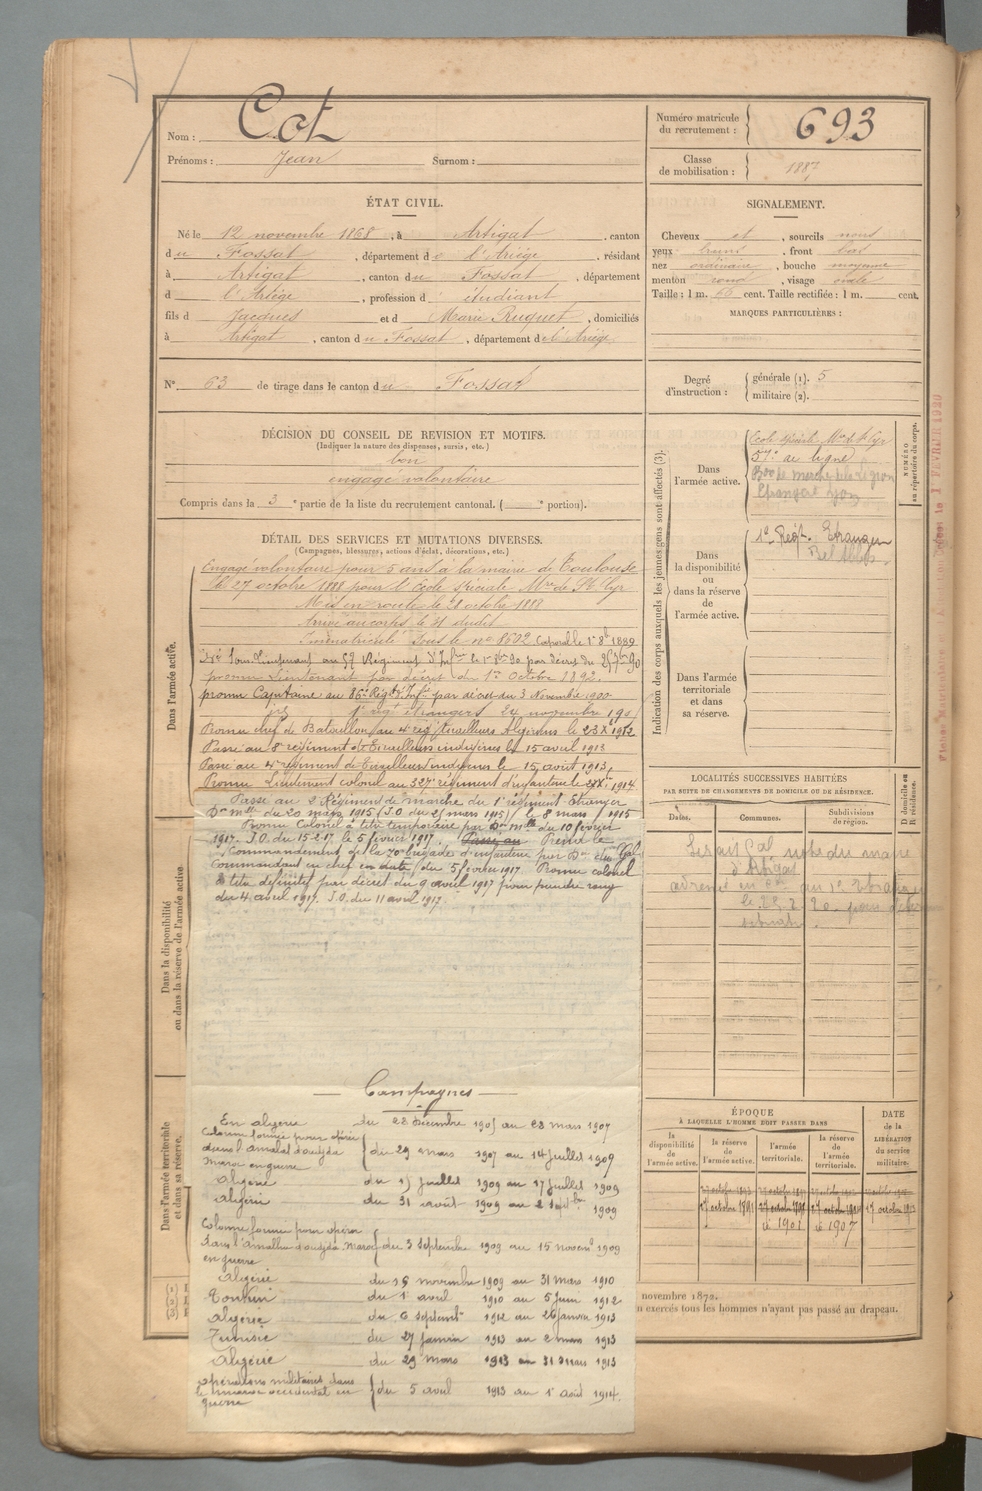 Nom : Cot
Prénoms : Jean Surnom :
Numéro matricule du recrutement : 693
Classe de mobilisation : 1887
ÉTAT CIVIL.
Né le 12 novembre 1868, à Artigat, canton
du Fossat, département de l'Ariège, résidant
à Artigat, canton du Fossat, département
d l'Ariège, profession d étudiant
fils d Jacques et d Marie Ruquet, domiciliés
à Artigat, canton du Fossat, département de l'Ariège
N° 63 de tirage dans le canton du Fossat
SIGNALEMENT.
Cheveux et, sourcils noirs
yeux bruns, front bas
nez ordinaire, bouche moyenne
menton rond, visage ovale
Taille : 1 m. 66 cent. Taille rectifiée : 1 m. cent.
MARQUES PARTICULIÈRES :
Degré d'instruction : générale (1). 5
militaire (2).
DÉCISION DU CONSEIL DE REVISION ET MOTIFS.
(Indiquer la nature des dispenses, sursis, etc.)
bon
engagé volontaire
Compris dans la 3e partie de la liste du recrutement cantonal. ( e portion).
DÉTAIL DES SERVICES ET MUTATIONS DIVERSES.
(Campagnes, blessures, actions d'éclat, décorations, etc.)
Dans l'armée active.
Engagé volontaire pour 5 ans à la mairie de Toulouse
le 27 octobre 1888 pour l'Ecole spéciale Mre de St Cyr
Mis en route le 28 octobre 1888
Arrivé au corps le 31 dudit
Immatriculé sous le no 1602 Caporal le 1er 8bre 1889
Sous-Lieutenant au 57 Régiment d'Infrie le 1er 8bre 90 par décret du
promu Lieutenant par décret du 1er Octobre 1892.
promu Capitaine au 86e Régt d'Infie par décret du 3 Novembre 1900
1er régt étrangers 24 novembre
Promu chef de Bataillon au 4e régt tirailleurs Algériens le 23 Xbre 1912
Passé au 8e régiment de Tirailleurs indigènes le 15 avril 1913
Passé au 4e régiment de Tirailleurs indigènes le 15 août 1913
Promu Lieutenant colonel au 327e régiment d'infanterie le 1914
Passé au 2 Régiment de marche du 1er régiment Etranger
Don mlle du 20 mars 1915 (J.O. du 25 mars 1915) le 8 mars 1915
Promu Colonel à titre temporaire par Don mlle du 10 février
1917. J.O. du 15-2-17. le 5 février 1917. Passé au Prend le
Commandement de la 70e brigade d'infanterie par Don du Gal
Commandant en chef en date du 5 février 1917 Promu colonel
à titre définitif par décret du 9 avril 1917 pour prendre rang
du 4 avril 1917. J.O. du 11 avril 1917
Dans la disponibilité ou dans la réserve de l'armée active
Dans l'armée territoriale et dans sa réserve.
Campagnes
En algérie du 22 Décembre 1905 au 23 mars 1907
Colonne formée pour opérer
dans l'amalat d'oudjda
Maroc en guerre du 29 mars 1907 au 14 juillet 1909
Algérie du 15 juillet 1909 au 17 juillet 1909
Algérie du 31 août 1909 au 2 Septbre 1909
Colonne formée pour opérer
dans l'amallat d'oudjda Maroc
en guerre du 3 septembre 1909 au 15 novembre 1909
Algérie du 16 novembre 1909 au 31 mars 1910
Tonkin du 1er avril 1910 au 5 juin 1912
Algérie du 6 septembre 1912 au 26 janvier 1913
Tunisie du 27 janvier 1913 au 2 mars 1913
Algérie du 29 mars 1913 au 31 mars 1913
opérations militaires dans
le maroc occidental en
guerre du 5 avril 1913 au 1er août 1914.
Indication des corps auxquels les jeunes gens sont affectés (3).
NUMÉRO au répertoire du corps.
Dans l'armée active.
Ecole spéciale Mre de St Cyr
57e de ligne
de marche de la légion
Etrangère
Dans la disponibilité ou dans la réserve de l'armée active.
1er Regt Etranger
Bel Abbès
Dans l'armée territoriale et dans sa réserve.
LOCALITÉS SUCCESSIVES HABITÉES
PAR SUITE DE CHANGEMENTS DE DOMICILE OU DE RÉSIDENCE.
Dates. Communes. Subdivisions de région. D domicile ou R résidence.
note du maire
d'Artigat
au 1er Etranger
le 22.2.20
ÉPOQUE
À LAQUELLE L'HOMME DOIT PASSER DANS
la disponibilité de l'armée active. la réserve de l'armée active. l'armée territoriale. la réserve de l'armée territoriale.
DATE de la LIBÉRATION du service militaire.
27 octobre 1891 27 octobre 17 octobre 1913
d° 1901 d° 1907
novembre 1872.
n exercés tous les hommes n'ayant pas passé au drapeau.